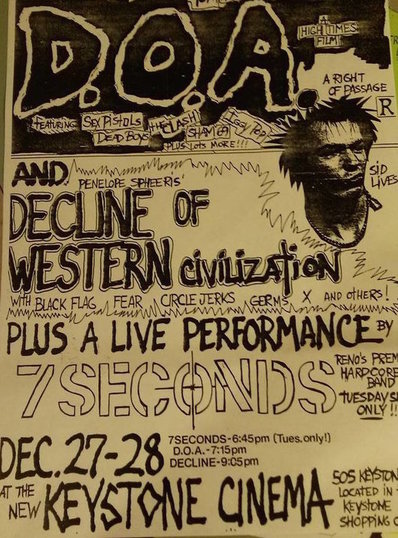 D.O.A.
A
HIGH TIMES
FILM
A RIGHT
OF
PASSAGE
R
FEATURING SEX PISTOLS THE CLASH IGGY POP
DEAD BOYS SHAM 69
PLUS LOTS MORE!!!
SID
LIVES
AND PENELOPE SPHEERIS'
DECLINE OF
WESTERN CIVILIZATION
WITH BLACK FLAG FEAR CIRCLE JERKS GERMS X AND OTHERS!
PLUS A LIVE PERFORMANCE BY
7SECONDS
RENO'S PREM
HARDCORE
BAND
TUESDAY
ONLY!!
DEC. 27-28
7SECONDS-6:45pm (Tues.only!)
D.O.A.-7:15pm
DECLINE-9:05pm
AT THE
NEW KEYSTONE CINEMA
505 KEYSTON
LOCATED IN
KEYSTONE
SHOPPING C